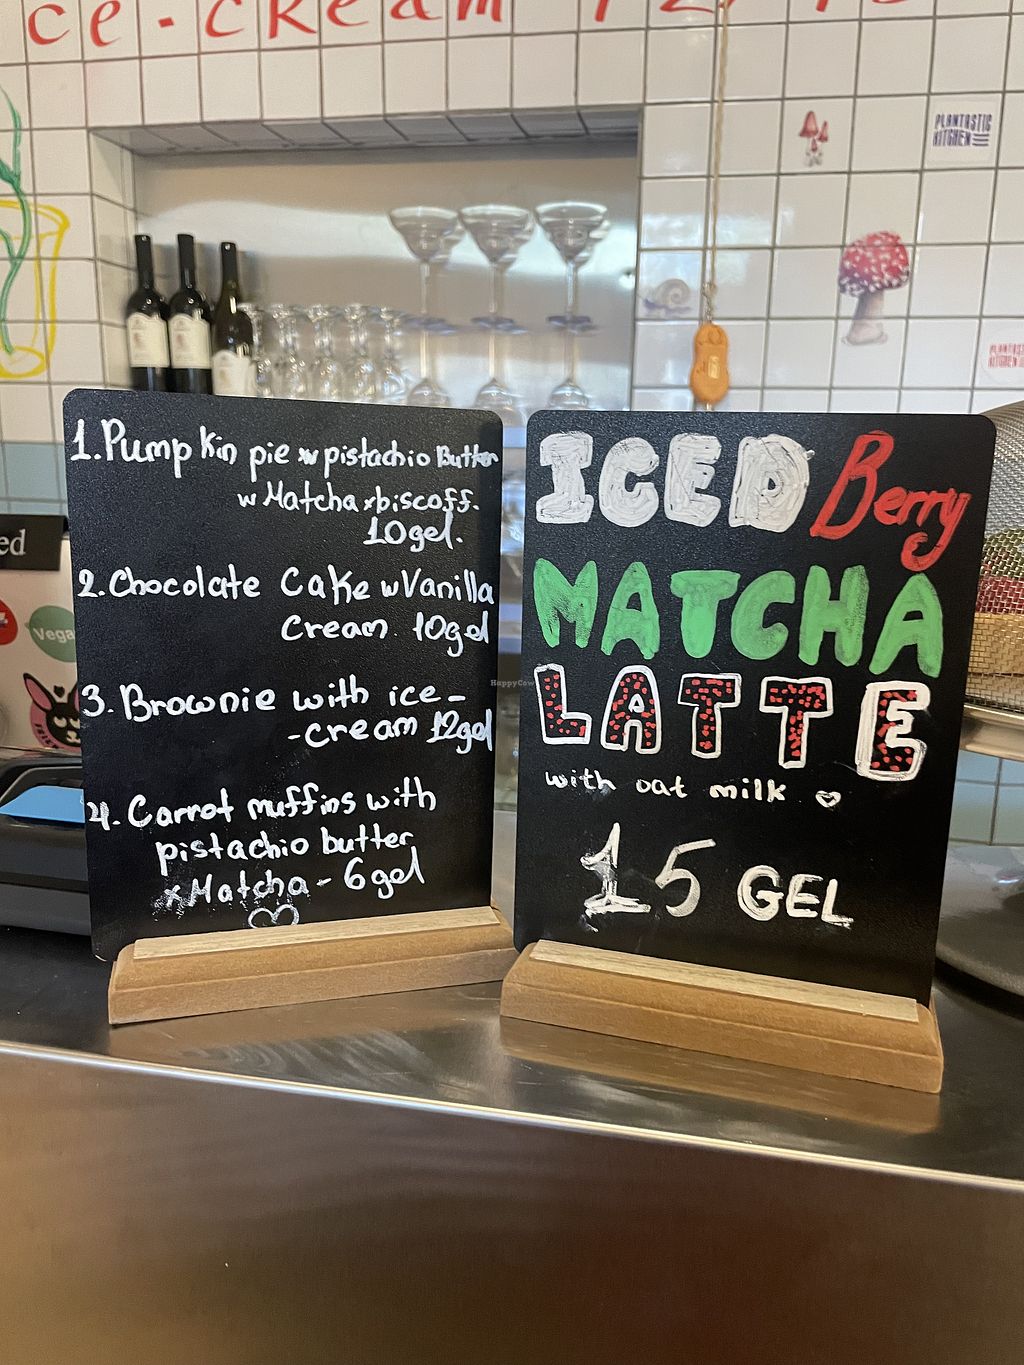 ce-cream
PLANTASTIC
KITCHEN
PLANTASTIC
KITCHEN
ed
Vega
1. Pumpkin pie w pistachio Butter
w Matcha x biscoff.
10gel.
2. Chocolate Cake w Vanilla
Cream. 10gel
3. Brownie with ice-
-cream 12gel
4. Carrot muffins with
pistachio butter
x Matcha - 6gel
HappyCow
ICED Berry
MATCHA
LATTE
with oat milk
15 GEL